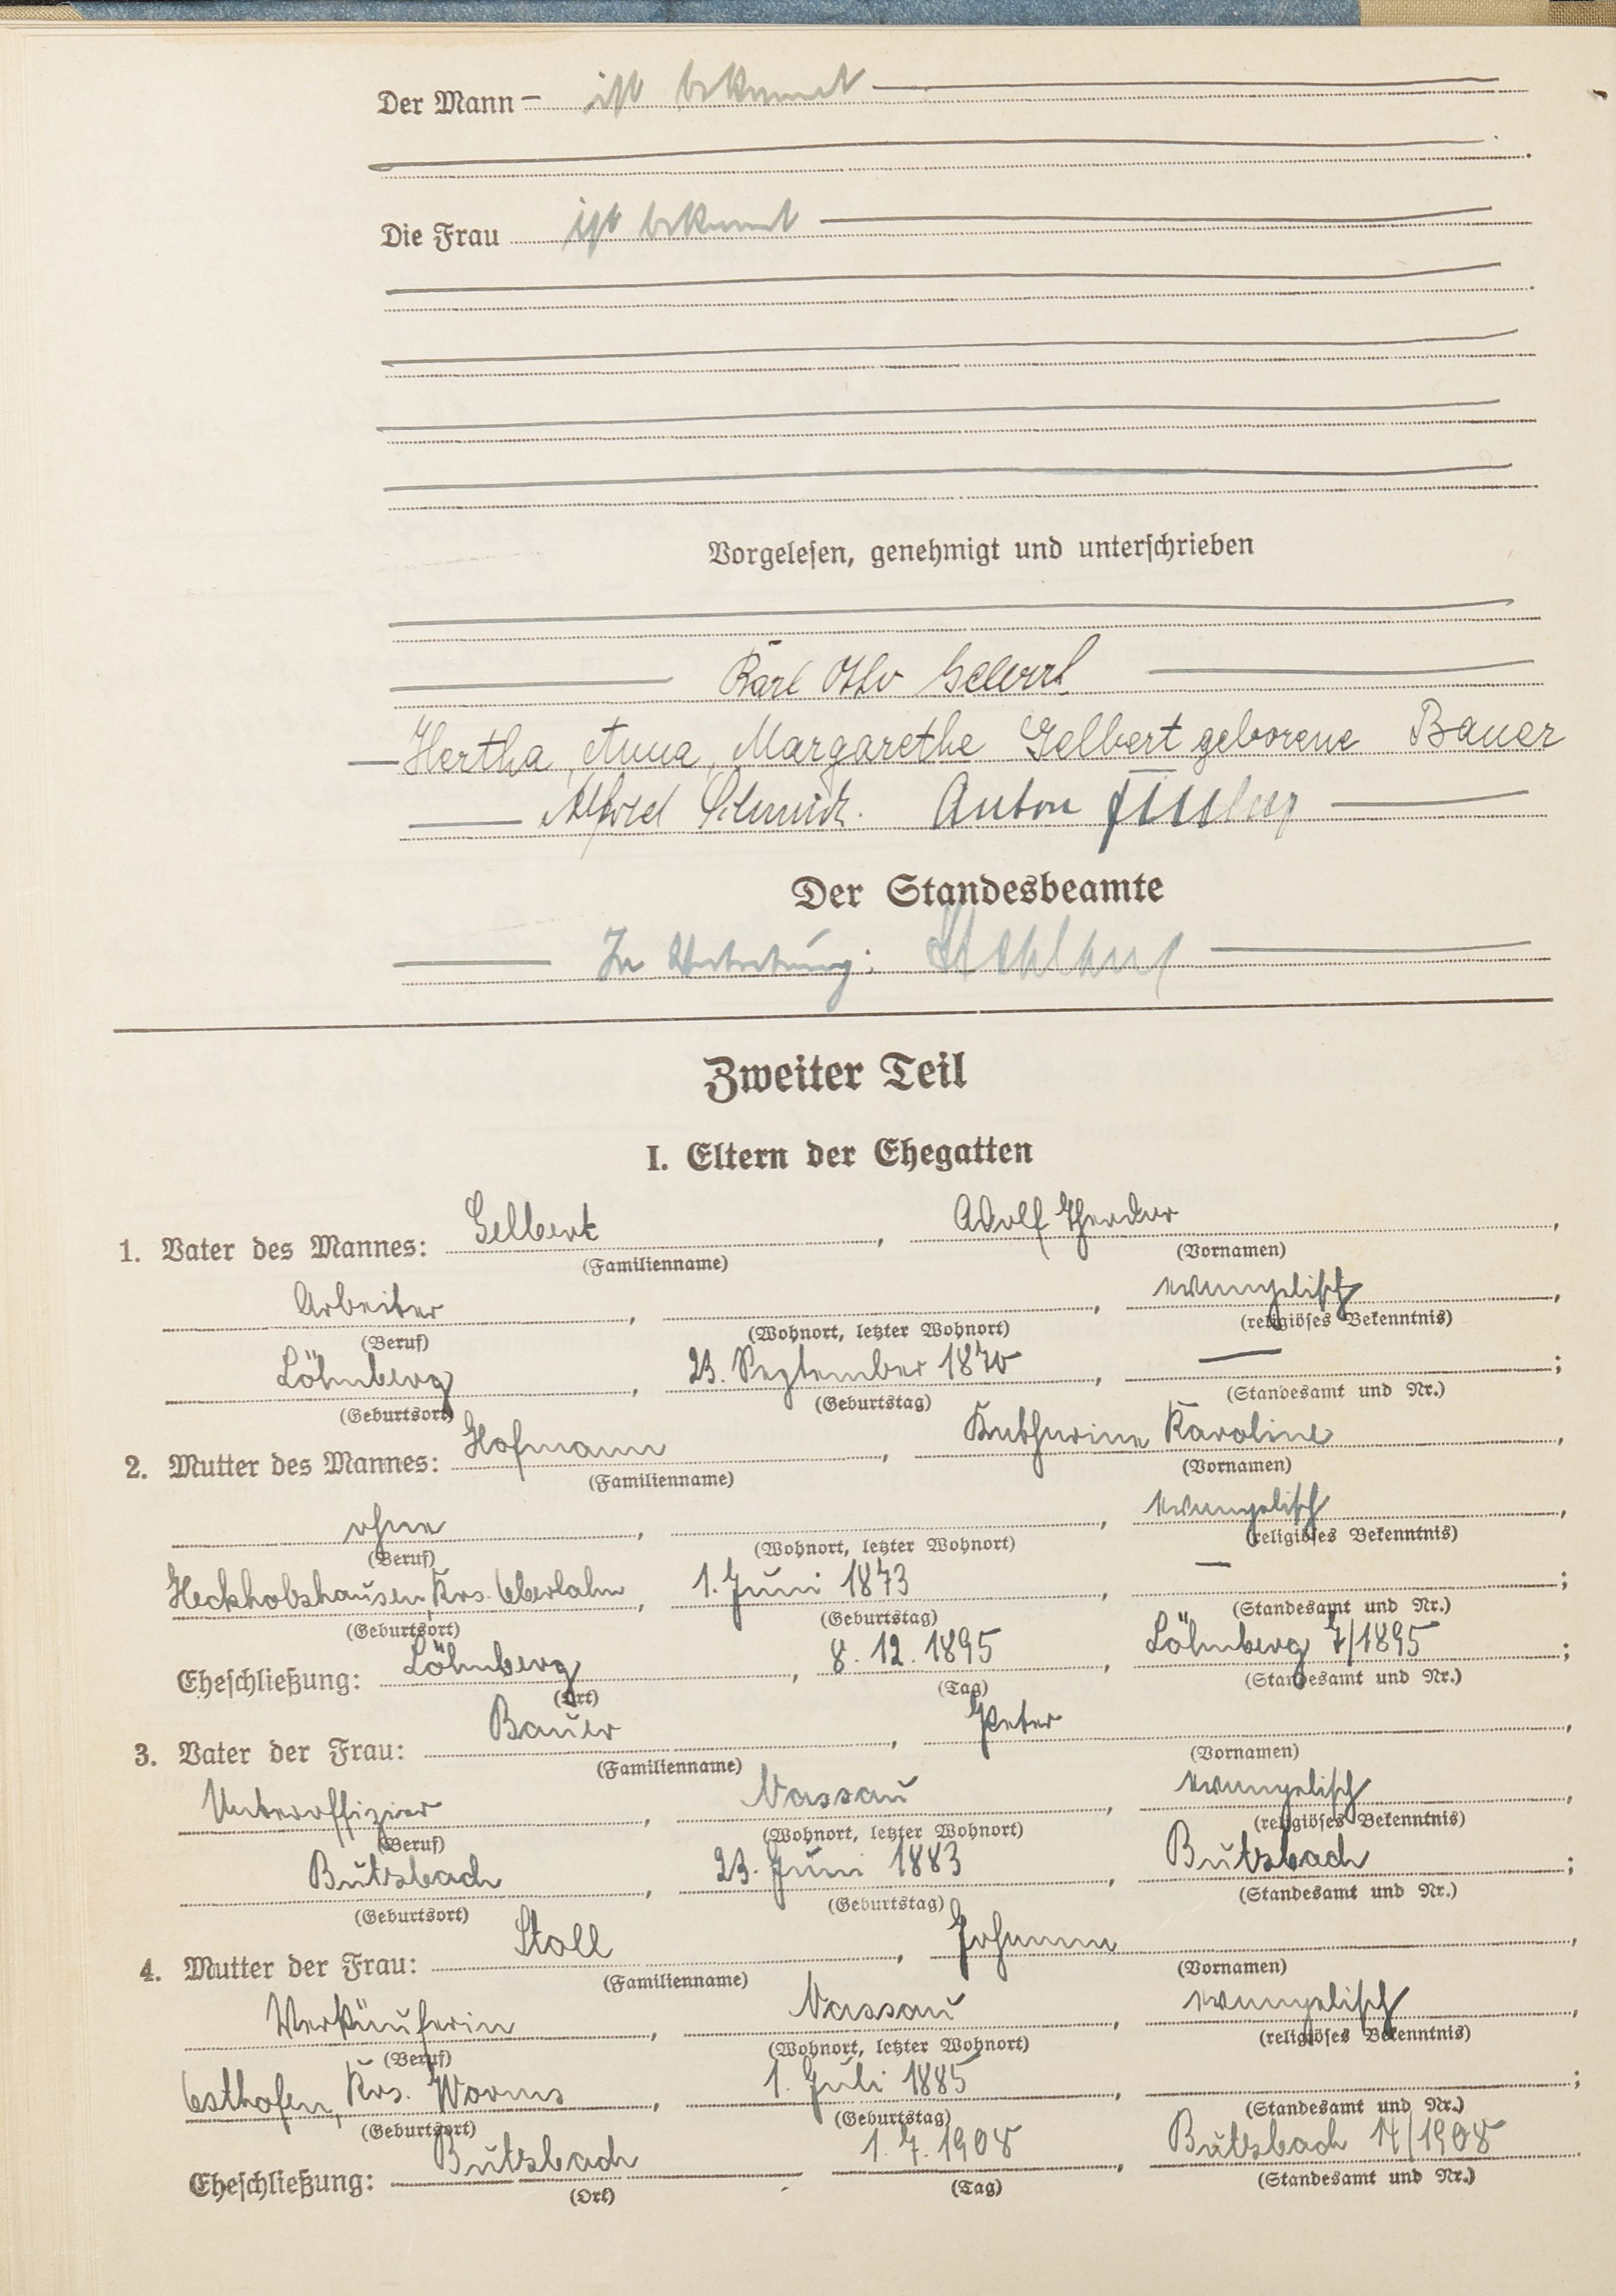 Der Mann – ist bekannt
Die Frau ist bekannt
Vorgelesen, genehmigt und unterschrieben
Karl Otto Gelbert
Hertha, Anna, Margarethe Gelbert geborene Bauer
Alfred Schmidt. Anton
Der Standesbeamte
In Vertretung:
Zweiter Teil
I. Eltern der Ehegatten
1. Vater des Mannes: Gelbert, Adolf Theodor,
(Familienname) (Vornamen)
Arbeiter, , evangelisch,
(Beruf) (Wohnort, letzter Wohnort) (religiöses Bekenntnis)
Löhnberg, 23. September 1870, — ;
(Geburtsort) (Geburtstag) (Standesamt und Nr.)
2. Mutter des Mannes: Hofmann, Katharine Karoline,
(Familienname) (Vornamen)
ohne, , evangelisch,
(Beruf) (Wohnort, letzter Wohnort) (religiöses Bekenntnis)
Heckholzhausen, Krs. Oberlahn, 1. Juni 1873, — ;
(Geburtsort) (Geburtstag) (Standesamt und Nr.)
Eheschließung: Löhnberg, 8. 12. 1895, Löhnberg 7/1895;
(Ort) (Tag) (Standesamt und Nr.)
3. Vater der Frau: Bauer, Peter,
(Familienname) (Vornamen)
Unteroffizier, Nassau, evangelisch,
(Beruf) (Wohnort, letzter Wohnort) (religiöses Bekenntnis)
Butzbach, 23. Juni 1883, Butzbach;
(Geburtsort) (Geburtstag) (Standesamt und Nr.)
4. Mutter der Frau: Stoll, Johanna,
(Familienname) (Vornamen)
Verkäuferin, Nassau, evangelisch,
(Beruf) (Wohnort, letzter Wohnort) (religiöses Bekenntnis)
Osthofen, Krs. Worms, 1. Juli 1885, ;
(Geburtsort) (Geburtstag) (Standesamt und Nr.)
Eheschließung: Butzbach 1. 7. 1908, Butzbach 14/1908
(Ort) (Tag) (Standesamt und Nr.)